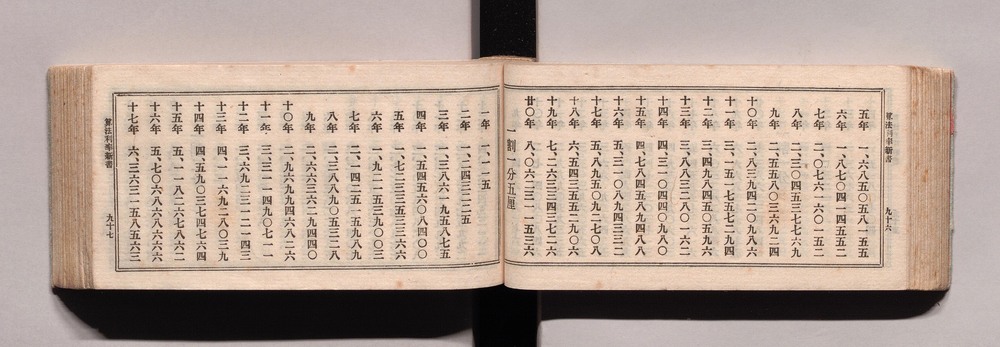 算法利率新書 九十六
五年 一、六八五〇五八一五五
六年 一、八七〇四一四五五二
七年 二、〇七六一六〇一五二
八年 二、三〇四五三七七六九
九年 二、五五八〇三六九二四
十〇年 二、八三九四二〇九八六
十一年 三、一五一七五七二九四
十二年 三、四九八四五〇五九六
十三年 三、八八三二八〇一六二
十四年 四、三一〇四四〇九八〇
十五年 四、七八四五八九四八八
十六年 五、三一〇八九四三三二
十七年 五、八九五〇九二七〇八
十八年 六、五四三五五二九〇六
十九年 七、二六三三四三七二六
廿〇年 八、〇六二三一一五三六
一割一分五厘
一年 一、一一五
二年 一、二四三二二五
三年 一、三八六一九五八七五
四年 一、五四五六〇八四〇〇
五年 一、七二三三五三三六六
六年 一、九二一五三九〇〇三
七年 二、一四二五一五九八九
八年 二、三八八九〇五三二八
九年 二、六六三六二九四四〇
十〇年 二、九六九九四六八二六
十一年 三、三一一四九〇七一一
十二年 三、六九二三一二一四三
十三年 四、一一六九二八〇三九
十四年 四、五九〇三七四七六四
十五年 五、一一八二六七八六二
十六年 五、七〇六八六八六六六
十七年 六、三六三一五八五六三
算法利率新書 九十七